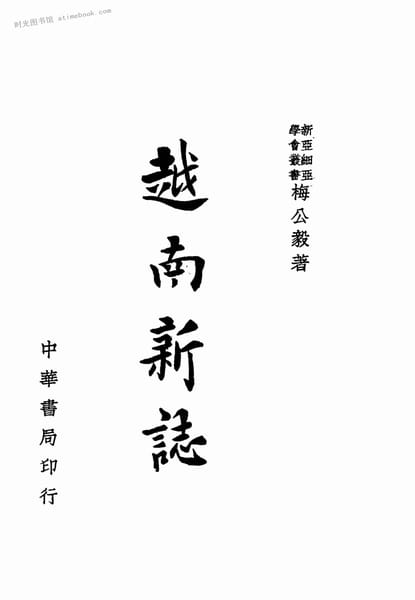 时光图书馆 - atimebook.com
新亞細亞
學會叢書
梅公毅著
越南新誌
中華書局印行